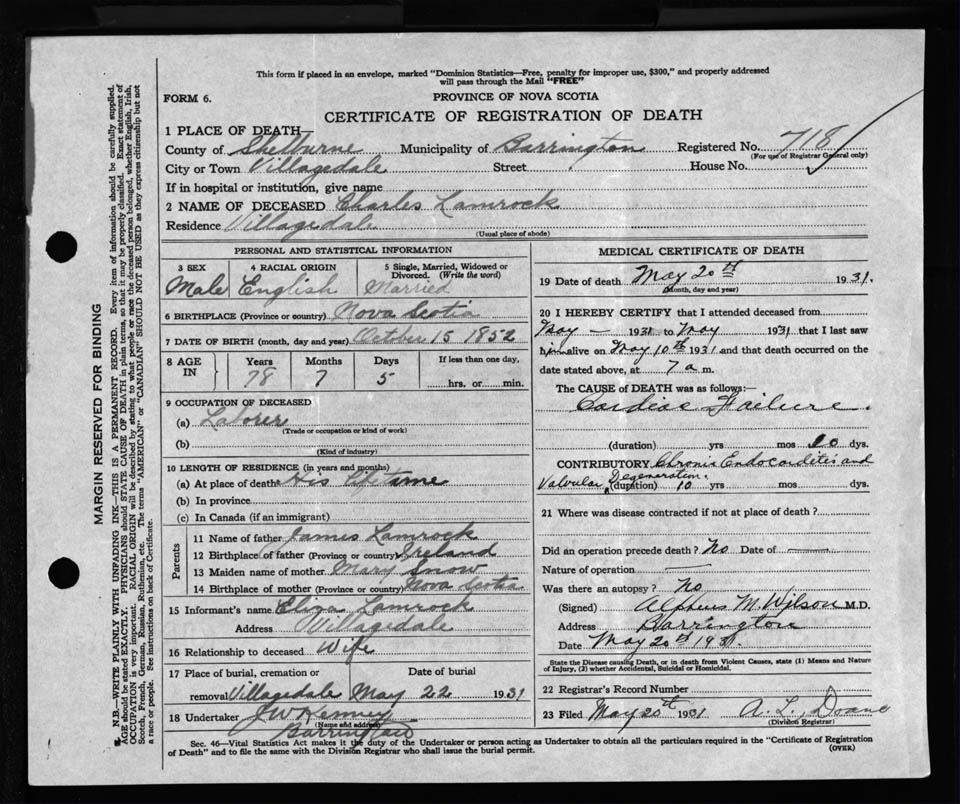 This form if placed in an envelope, marked "Dominion Statistics—Free, penalty for improper use, $300," and properly addressed
will pass through the Mail "FREE"
FORM 6.
PROVINCE OF NOVA SCOTIA
CERTIFICATE OF REGISTRATION OF DEATH
1 PLACE OF DEATH—
County of Shelburne Municipality of Barrington Registered No. 718
(For use of Registrar General only)
City or Town Villagedale Street House No.
If in hospital or institution, give name
2 NAME OF DECEASED Charles Lamrock
Residence Villagedale
(Usual place of abode)
PERSONAL AND STATISTICAL INFORMATION
3 SEX 4 RACIAL ORIGIN 5 Single, Married, Widowed or
Divorced. (Write the word)
Male English Married
6 BIRTHPLACE (Province or country) Nova Scotia
7 DATE OF BIRTH (month, day and year) October 15 1852
8 AGE IN Years Months Days If less than one day,
78 7 5 hrs. or min.
9 OCCUPATION OF DECEASED
(a) Laborer
(Trade or occupation or kind of work)
(b)
(Kind of industry)
10 LENGTH OF RESIDENCE (in years and months)
(a) At place of death His lifetime
(b) In province
(c) In Canada (if an immigrant)
Parents
11 Name of father James Lamrock
12 Birthplace of father (Province or country) Ireland
13 Maiden name of mother Mary Snow
14 Birthplace of mother (Province or country) Nova Scotia
15 Informant's name Eliza Lamrock
Address Villagedale
16 Relationship to deceased Wife
17 Place of burial, cremation or Date of burial
removal Villagedale May 22 1931
18 Undertaker J W Kenney
(Name and address)
Barrington
MEDICAL CERTIFICATE OF DEATH
19 Date of death May 20th 1931.
(Month, day and year)
20 I HEREBY CERTIFY that I attended deceased from
May — 1931 to May 1931 that I last saw
him alive on May 10th 1931 and that death occurred on the
date stated above, at 7 a m.
The CAUSE of DEATH was as follows:—
Cardiac Failure.
(duration) yrs mos 10 dys.
CONTRIBUTORY Chronic Endocarditis and
Valvular Degeneration.
(duration) 10 yrs mos dys.
21 Where was disease contracted if not at place of death?
Did an operation precede death? No Date of —
Nature of operation —
Was there an autopsy? No
(Signed) Alpheus M. Wilson M.D.
Address Barrington
Date May 20th 1931
State the Disease causing Death, or in death from Violent Causes, state (1) Means and Nature
of Injury, (2) whether Accidental, Suicidal or Homicidal.
22 Registrar's Record Number
23 Filed May 20th 1931 A. L. Doane
(Division Registrar)
Sec. 46—Vital Statistics Act makes it the duty of the Undertaker or person acting as Undertaker to obtain all the particulars required in the "Certificate of Registration
of Death" and to file the same with the Division Registrar who shall issue the burial permit.
(OVER)
MARGIN RESERVED FOR BINDING
N.B.—WRITE PLAINLY WITH UNFADING INK—THIS IS A PERMANENT RECORD. Every item of information should be carefully supplied.
AGE should be stated EXACTLY. PHYSICIANS should STATE CAUSE OF DEATH in plain terms, so that it may be properly classified. Exact statement of
OCCUPATION is very important. RACIAL ORIGIN will be described by stating to what people or race the deceased person belonged, whether English, Irish,
Scotch, French, German, Russian, Ruthenian, etc. The terms "AMERICAN" or "CANADIAN" SHOULD NOT BE USED as they express citizenship but not
a race or people. See instructions on back of Certificate.